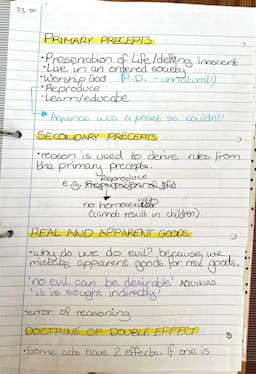 PRIMARY PRECEPTS
•Preservation of Life/defing innocent
•Live in an ordered society
•Worship God (R.D. - unnatural)
•Reproduce
•Learn/educate
Aquinas was a priest so couldn't!
SECONDARY PRECEPTS
•reason is used to derive rules from
the primary precepts.
Reproduce
e.g. Preservation of life
no homosexual
(cannot result in children)
REAL AND APPARENT GOODS
•why do we do evil? because we
mistake apparent goods for real goods.
'no evil can be desirable' AQUINAS
'it is sought indirectly'
•error of reasoning
DOCTRINE OF DOUBLE EFFECT
•Some acts have 2 effects. If one is